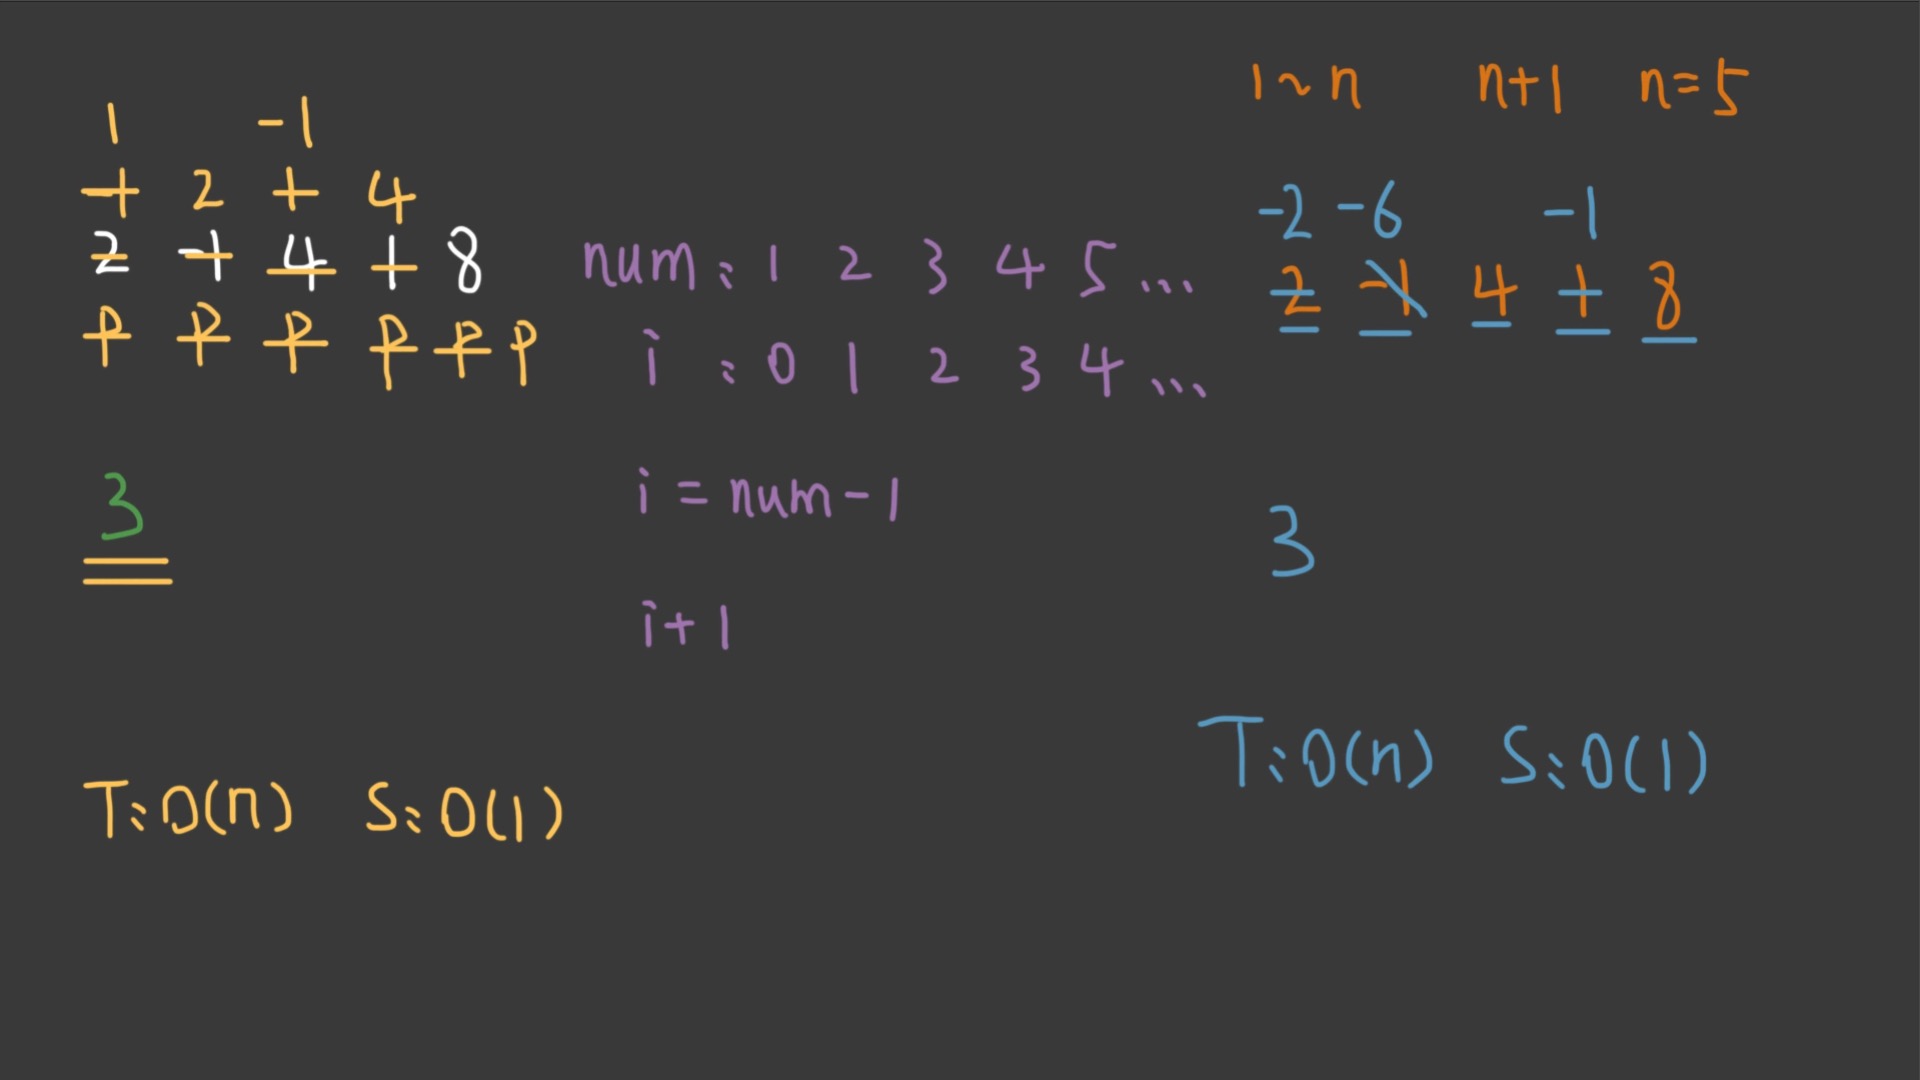 1 -1
+ 2 + 4
2 -1 4 1 8
p p p p p p
3
T: O(n) S: O(1)
num: 1 2 3 4 5 ...
i : 0 1 2 3 4 ...
i = num - 1
i + 1
1 ~ n n+1 n=5
-2 -6 -1
2 -1 4 1 8
3
T: O(n) S: O(1)